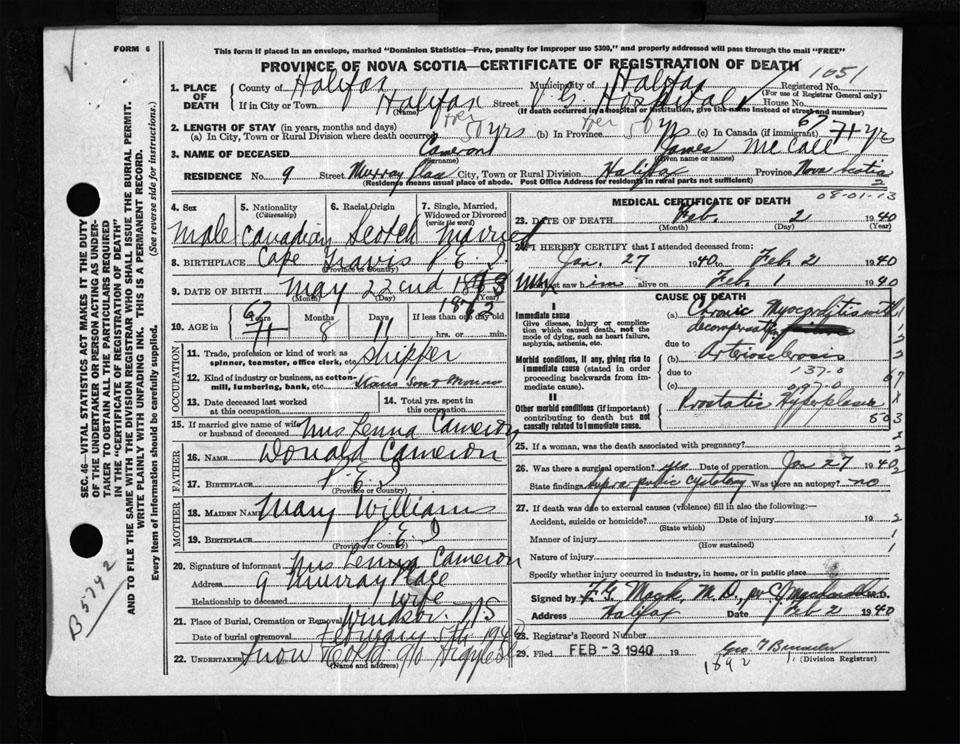 FORM 6
This form if placed in an envelope, marked "Dominion Statistics—Free, penalty for improper use $300," and properly addressed will pass through the mail "FREE"
PROVINCE OF NOVA SCOTIA—CERTIFICATE OF REGISTRATION OF DEATH
1051
1. PLACE OF DEATH
County of Halifax Municipality of Halifax Registered No.
(For use of Registrar General only)
If in City or Town Halifax Street V G Hospital House No.
(Name) (If death occurred in a hospital or institution, give the name instead of street and number)
2. LENGTH OF STAY (in years, months and days)
(a) In City, Town or Rural Division where death occurred over 50 yrs (b) In Province over 50 yrs (c) In Canada (if immigrant) 67 71 yrs
3. NAME OF DECEASED Cameron James McCall
(Surname) (Given name or names)
RESIDENCE No. 9 Street Murray Place City, Town or Rural Division Halifax Province Nova Scotia
(Residence means usual place of abode. Post Office Address for residents in rural parts not sufficient)
2
08-01-13
4. Sex 5. Nationality (Citizenship) 6. Racial Origin 7. Single, Married, Widowed or Divorced (write the word)
Male Canadian Scotch Married
8. BIRTHPLACE Cape Travis P E I
(Province or Country)
9. DATE OF BIRTH May 22nd 1873
(Month) (Day) (Year)
1872
10. AGE in Years Months Days If less than one day old
67 71 8 11 hrs. or min.
OCCUPATION
11. Trade, profession or kind of work as spinner, teamster, office clerk, etc. Shipper
12. Kind of industry or business, as cotton-mill, lumbering, bank, etc.
13. Date deceased last worked at this occupation
14. Total yrs. spent in this occupation
15. If married give name of wife or husband of deceased Mrs Lenna Cameron
FATHER
16. NAME Donald Cameron
17. BIRTHPLACE P. E. I
(Province or Country)
MOTHER
18. MAIDEN NAME Mary Williams
19. BIRTHPLACE P. E. I
(Province or Country)
20. Signature of informant Mrs Lenna Cameron
Address 9 Murray Place
Relationship to deceased Wife
21. Place of Burial, Cremation or Removal Windsor. N S
Date of burial or removal February 5th 1940
22. UNDERTAKER Snow & Co Ltd 90 Argyle St
(Name and address)
MEDICAL CERTIFICATE OF DEATH
23. DATE OF DEATH Feb 2 1940
(Month) (Day) (Year)
24. I HEREBY CERTIFY that I attended deceased from:
Jan. 27 1940 to Feb 2 1940
last saw him alive on Feb 1 1940
CAUSE OF DEATH
I
Immediate cause
Give disease, injury or complication which caused death, not the mode of dying, such as heart failure, asphyxia, asthenia, etc.
(a) Chronic Myocarditis with decompensation
due to
Morbid conditions, if any, giving rise to immediate cause (stated in order proceeding backwards from immediate cause).
(b) Arteriosclerosis
due to 137-0
(c) 097-0
II
Other morbid conditions (if important) contributing to death but not causally related to immediate cause.
Prostatic Hyperplasia
503
25. If a woman, was the death associated with pregnancy?
26. Was there a surgical operation? yes Date of operation Jan 27 1940
State findings supra pubic cystotomy Was there an autopsy? no
27. If death was due to external causes (violence) fill in also the following:—
Accident, suicide or homicide? Date of injury 19
(State which)
Manner of injury
(How sustained)
Nature of injury
Specify whether injury occurred in industry, in home, or in public place
Signed by F. G. Mack, M. D., per M.D.
Address Halifax Feb 2 1940
28. Registrar's Record Number
29. Filed FEB - 3 1940 19
(Division Registrar)
1892
SEC. 46—VITAL STATISTICS ACT MAKES IT THE DUTY OF THE UNDERTAKER OR PERSON ACTING AS UNDERTAKER TO OBTAIN ALL THE PARTICULARS REQUIRED IN THE "CERTIFICATE OF REGISTRATION OF DEATH" AND TO FILE THE SAME WITH THE DIVISION REGISTRAR WHO SHALL ISSUE THE BURIAL PERMIT.
WRITE PLAINLY WITH UNFADING INK. THIS IS A PERMANENT RECORD.
Every item of information should be carefully supplied. (See reverse side for instructions.)
B 5742